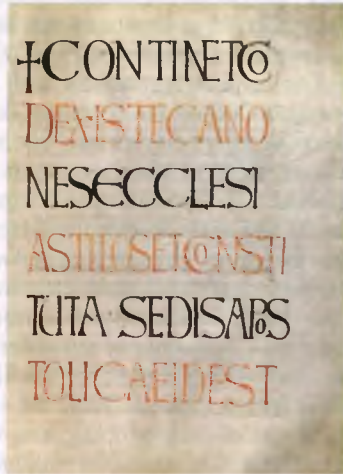 +CONTINETCO
DEXISTECANO
NESECCLESI
ASTICOSETCONSTI
TUTA SEDISAPOS
TOLICAEIDEST